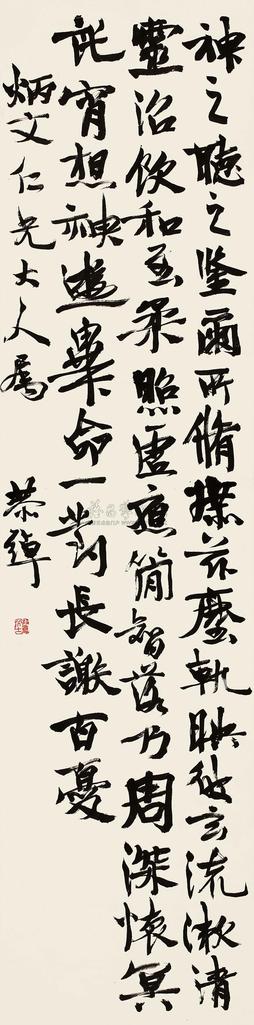 神之聽之鑒爾所脩茲塵軌映彼玄流漱清
靈沼飲和至柔照虛應簡智落乃周深懷冥
託宵想神遊畢命一對長謝百憂
炳文仁兄大人屬
恭綽